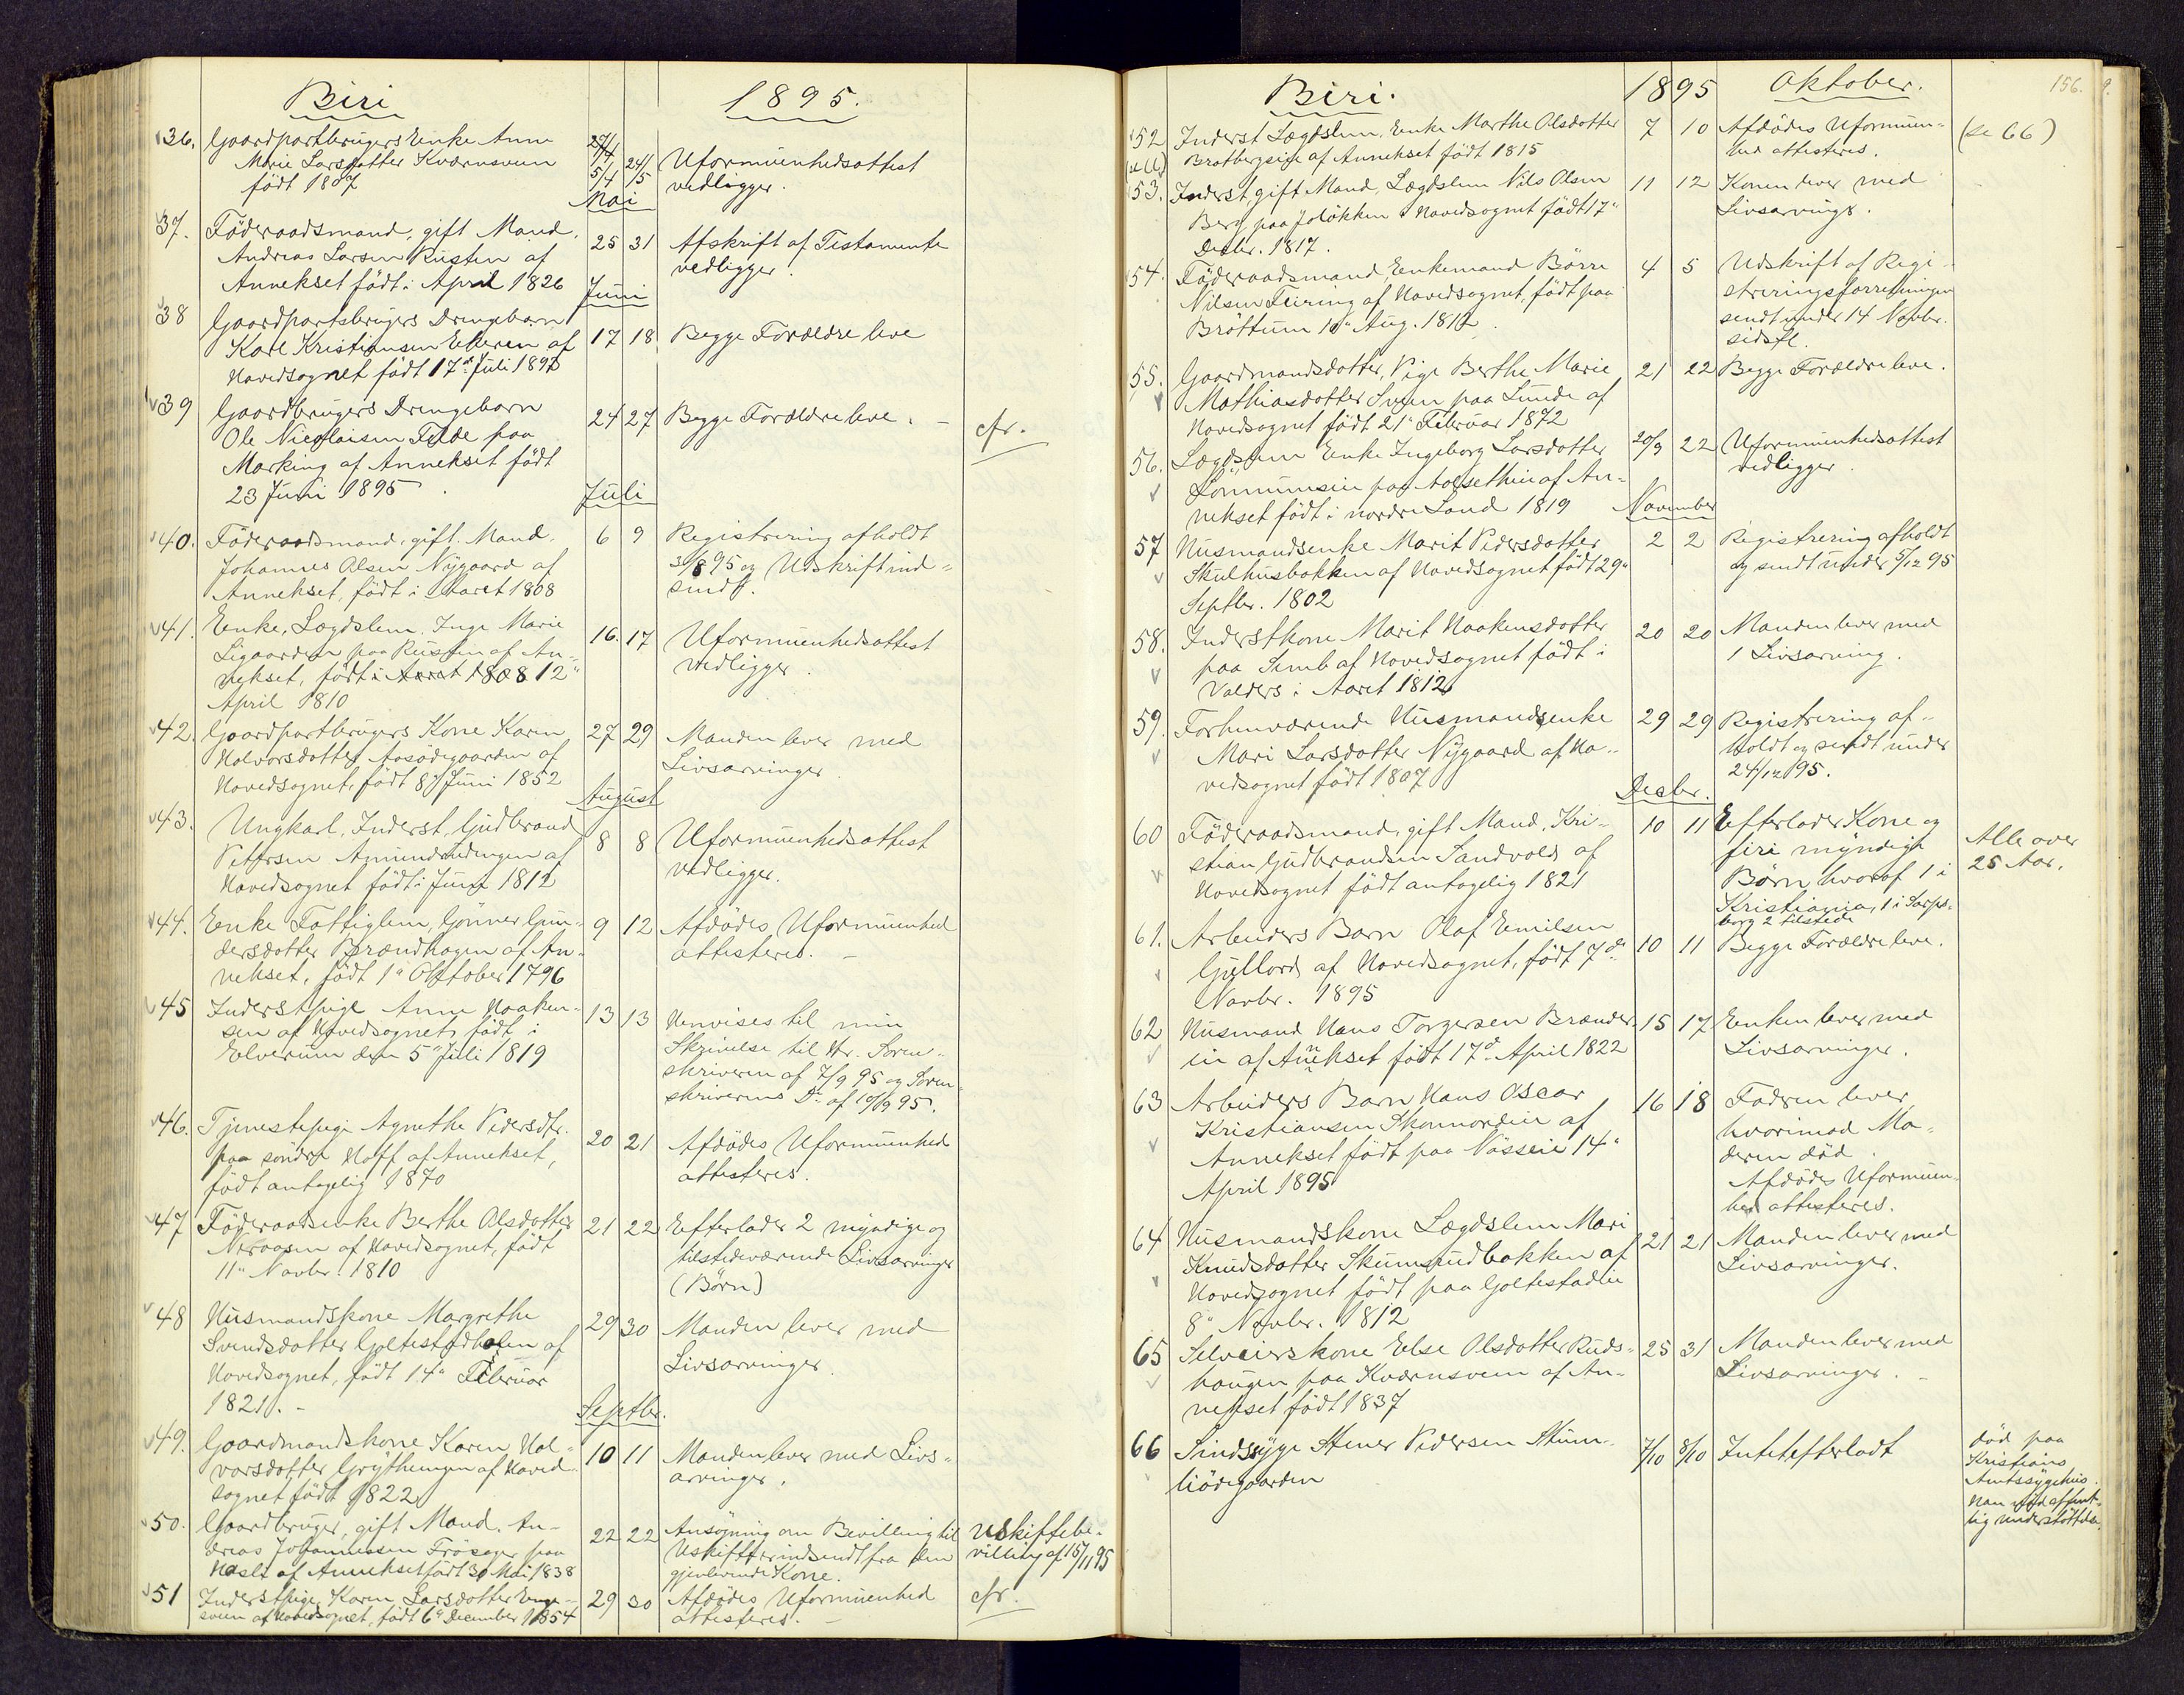 Biri
1895.
36. Gaardpartbrugers Enke Anne
Marie Larsdatter Kværnsveen
født 1807
27/4
5/4 24/5
Uformuenhedsattest
vedligger.
Mai
37. Föderaadsmand, gift Mand,
Andreas Larsen Rusten af
Annekset født i April 1826
25 31
Afskrift af Testamente
vedligger.
Juni
38 Gaardpartsbrugers Drengebarn
Karl Kristiansen Ekeren af
Hovedsognet født 17de Juli 1892
17 18
Begge Forældre leve
39 Gaardbrugers Drengebarn
Ole Nicolaisen paa
Marking af Annekset født
23 Juni 1895
24 27
Begge Forældre leve. -
cfr.
Juli
40. Föderaadsmand, gift Mand,
Johannes Olsen Nygaard af
Annekset, født i Aaret 1808
6 9
Registrering afholdt
3/8 95 og Udskrift ind-
sendt.
41. Enke, Lægdslem, Inge Marie
Ligaarden paa Rusten af An-
nekset, født i Aaret 1808 12"
April 1810
16. 17
Uformuenhedsattest
vedligger.
42. Gaardpartbrugers Kone Karen
Halvorsdatter Aasödegaarden af
Hovedsognet, født 8de Juni 1852
27 29
Manden lever med
Livsarvinger
August
43. Ungkarl, Inderst, Gudbrand
Petersen Amundrudengen af
Hovedsognet født i Juni 1812
8 8
Uformuenhedsattest
vedligger.
44. Enke Fattiglem, Gunner Gun-
dersdatter Brændhagen af An-
nekset, født 1" Oktober 1796
9 12
Afdødes Uformuenhed
attesteres. -
45 Inderstpige Anne Haaken-
sen af Hovedsognet, født i
Elverum den 5" Juli 1819
13 13
Henvises til min
Skrivelse til Hr. Soren-
skriveren af 7/9 95 og Soren-
skriverens Do af 10/9 95.
46. Tjenestepige Agnethe Pedersdtr.
paa søndre Hoff af Annekset,
født antagelig 1870
20 21
Afdødes Uformuenhed
attesteres.
47 Föderaadsenke Berthe Olsdatter
af Hovedsognet, født
11" Novbr. 1810
21 22
Efterlader 2 myndige og
tilstedeværende Livsarvinger
(Børn)
48 Husmandskone Margrethe
Svendsdatter Goltestadbolen af
Hovedsognet, født 14" Februar
1821. -
29 30
Manden lever med
Livsarvinger
Septbr.
49. Gaardmandskone Karen Hal-
vorsdatter Grythengen af Hoved-
sognet født 1822
10 11
Manden lever med Livs-
arvinger.
50. Gaardbruger, gift Mand, An-
dreas Johannessen Frösager paa
Hasle af Annekset født 30 Mai 1838
22 22
Ansøgning om Bevilling til
Uskifte indsendt fra den
gjenlevende Kone.
Uskiftebe-
villing af 15/11 95
51 Inderstpige Karen Larsdatter Enge-
sveen af Hovedsognet, født 6" December 1854
29 30
Afdødes Uformuenhed
attesteres. -
cfr.
Biri.
1895
Oktober.
156.
52 Inderst Lægdslem, Enke Marthe Olsdatter
Bratbergseie af Annekset født 1815
7 10
Afdødes Uformuen-
hed attesteres.
(se 66)
53. Inderst, gift Mand, Lægdslem Nils Olsen
Berg paa Joløkken i Hovedsognet født 17"
Decbr. 1817.
11 12
Konen lever med
Livsarvinge.
54. Föderaadsmand, Enkemand Börre
Nilsen Feiring af Hovedsognet, født paa
Bröttum 10" Aug. 1812.
4 5
Udskrift af Regi-
streringsforretningen
sendt under 14 Novbr.
sidstl.
55. Gaardmandsdatter, Pige Berthe Marie
Mathiasdatter Sveen paa Lunde af
Hovedsognet født 21" Februar 1872
21 22
Begge Forældre leve.
56. Lægdslem Enke Ingeborg Larsdatter
paa af An-
nekset født i nordre Land 1819
20/9 22
Uformuenhedsattest
vedligger.
November
57 Husmandsenke Marit Pedersdatter
Skulhusbakken af Hovedsognet født 29"
Septbr. 1802
2 2
Registrering afholdt
og sendt under 5/12 95
58. Inderstkone Marit Haakensdatter
paa Semb af Hovedsognet født i
Valders i Aaret 1812
20 20
Manden lever med
1 Livsarving.
59. Forhenværende Husmandsenke
Mari Larsdatter Nygaard af Ho-
vedsognet født 1807
29 29
Registrering af-
holdt og sendt under
24/12 95.
Decbr.
60 Föderaadsmand, gift Mand, Kri-
stian Gudbrandsen Sandvold af
Hovedsognet født antagelig 1821
10 11
Efterlader Kone og
fire myndige
Børn, hvoraf 1 i
Kristiania, 1 i Sarps-
borg 2 tilstede
Alle over
25 Aar.
61. Arbeiders Barn Olaf Emilsen
Gullord af Hovedsognet, født 7de
Novbr. 1895
10 11
Begge Forældre leve.
62 Husmand Hans Torgersen Brænder-
ein af Annekset født 17de April 1822
15 17
Enken lever med
Livsarvinger.
63 Arbeiders Barn Hans Oscar
Kristiansen Skonnordeie af
Annekset født paa Næsseie 14"
April 1895
16 18
Fadren lever
hvorimod Mo-
deren død.
Afdødes Uformuen-
hed attesteres.
64 Husmandskone Lægdslem Mari
Knudsdatter Skumsrudbakken af
Hovedsognet født paa Goltestadeie
8" Novbr. 1812
21 21
Manden lever med
Livsarvinger.
65 Selveierskone Else Olsdatter Ruds-
haugen paa Kværnsveen af An-
nekset født 1837
25 31
Manden lever med
Livsarvinger. -
66 Sindssyge Stener Pedersen Stum-
liödegaarden
7/10 8/10
Intet efterladt
død paa
Kristians
Amtssygehus.
Han nød offent-
lig understøttelse.